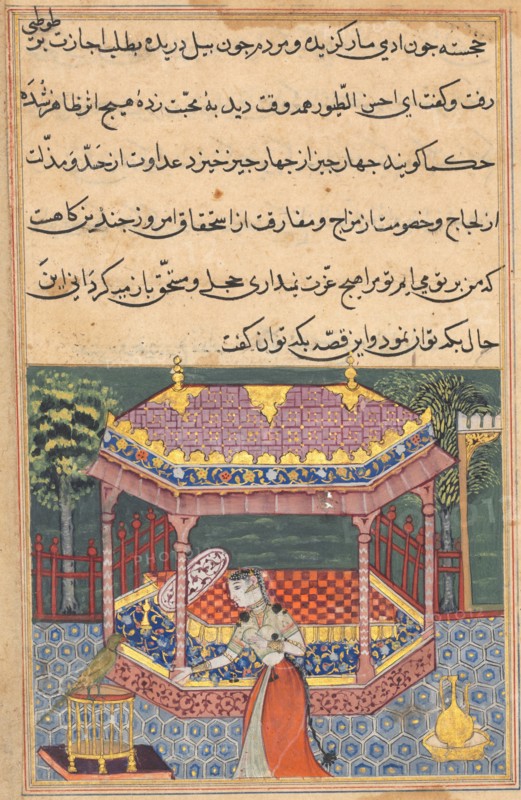 خجسته چون ادمی مار کزیده و مردم چون بیل دریده بطلب اجازت بر طوطی
رفت و کفت ای احسن الطیور همه وقت دیدۀ محبت زدۀ هیچ اثر ظاهر نشده
حکما کویند چهار چیز از چهار چیز خیزد عداوت از حسد و مذلت
از لجاج و خصومت از مزاح و مفارقت از استحقاق امروز چندین کاهست
که من بر تو می ایم تو مرا هیچ عزت نمیداری خجل و باز میکردانی این
حال بکه توان نمود و این قصه بکه توان کفت